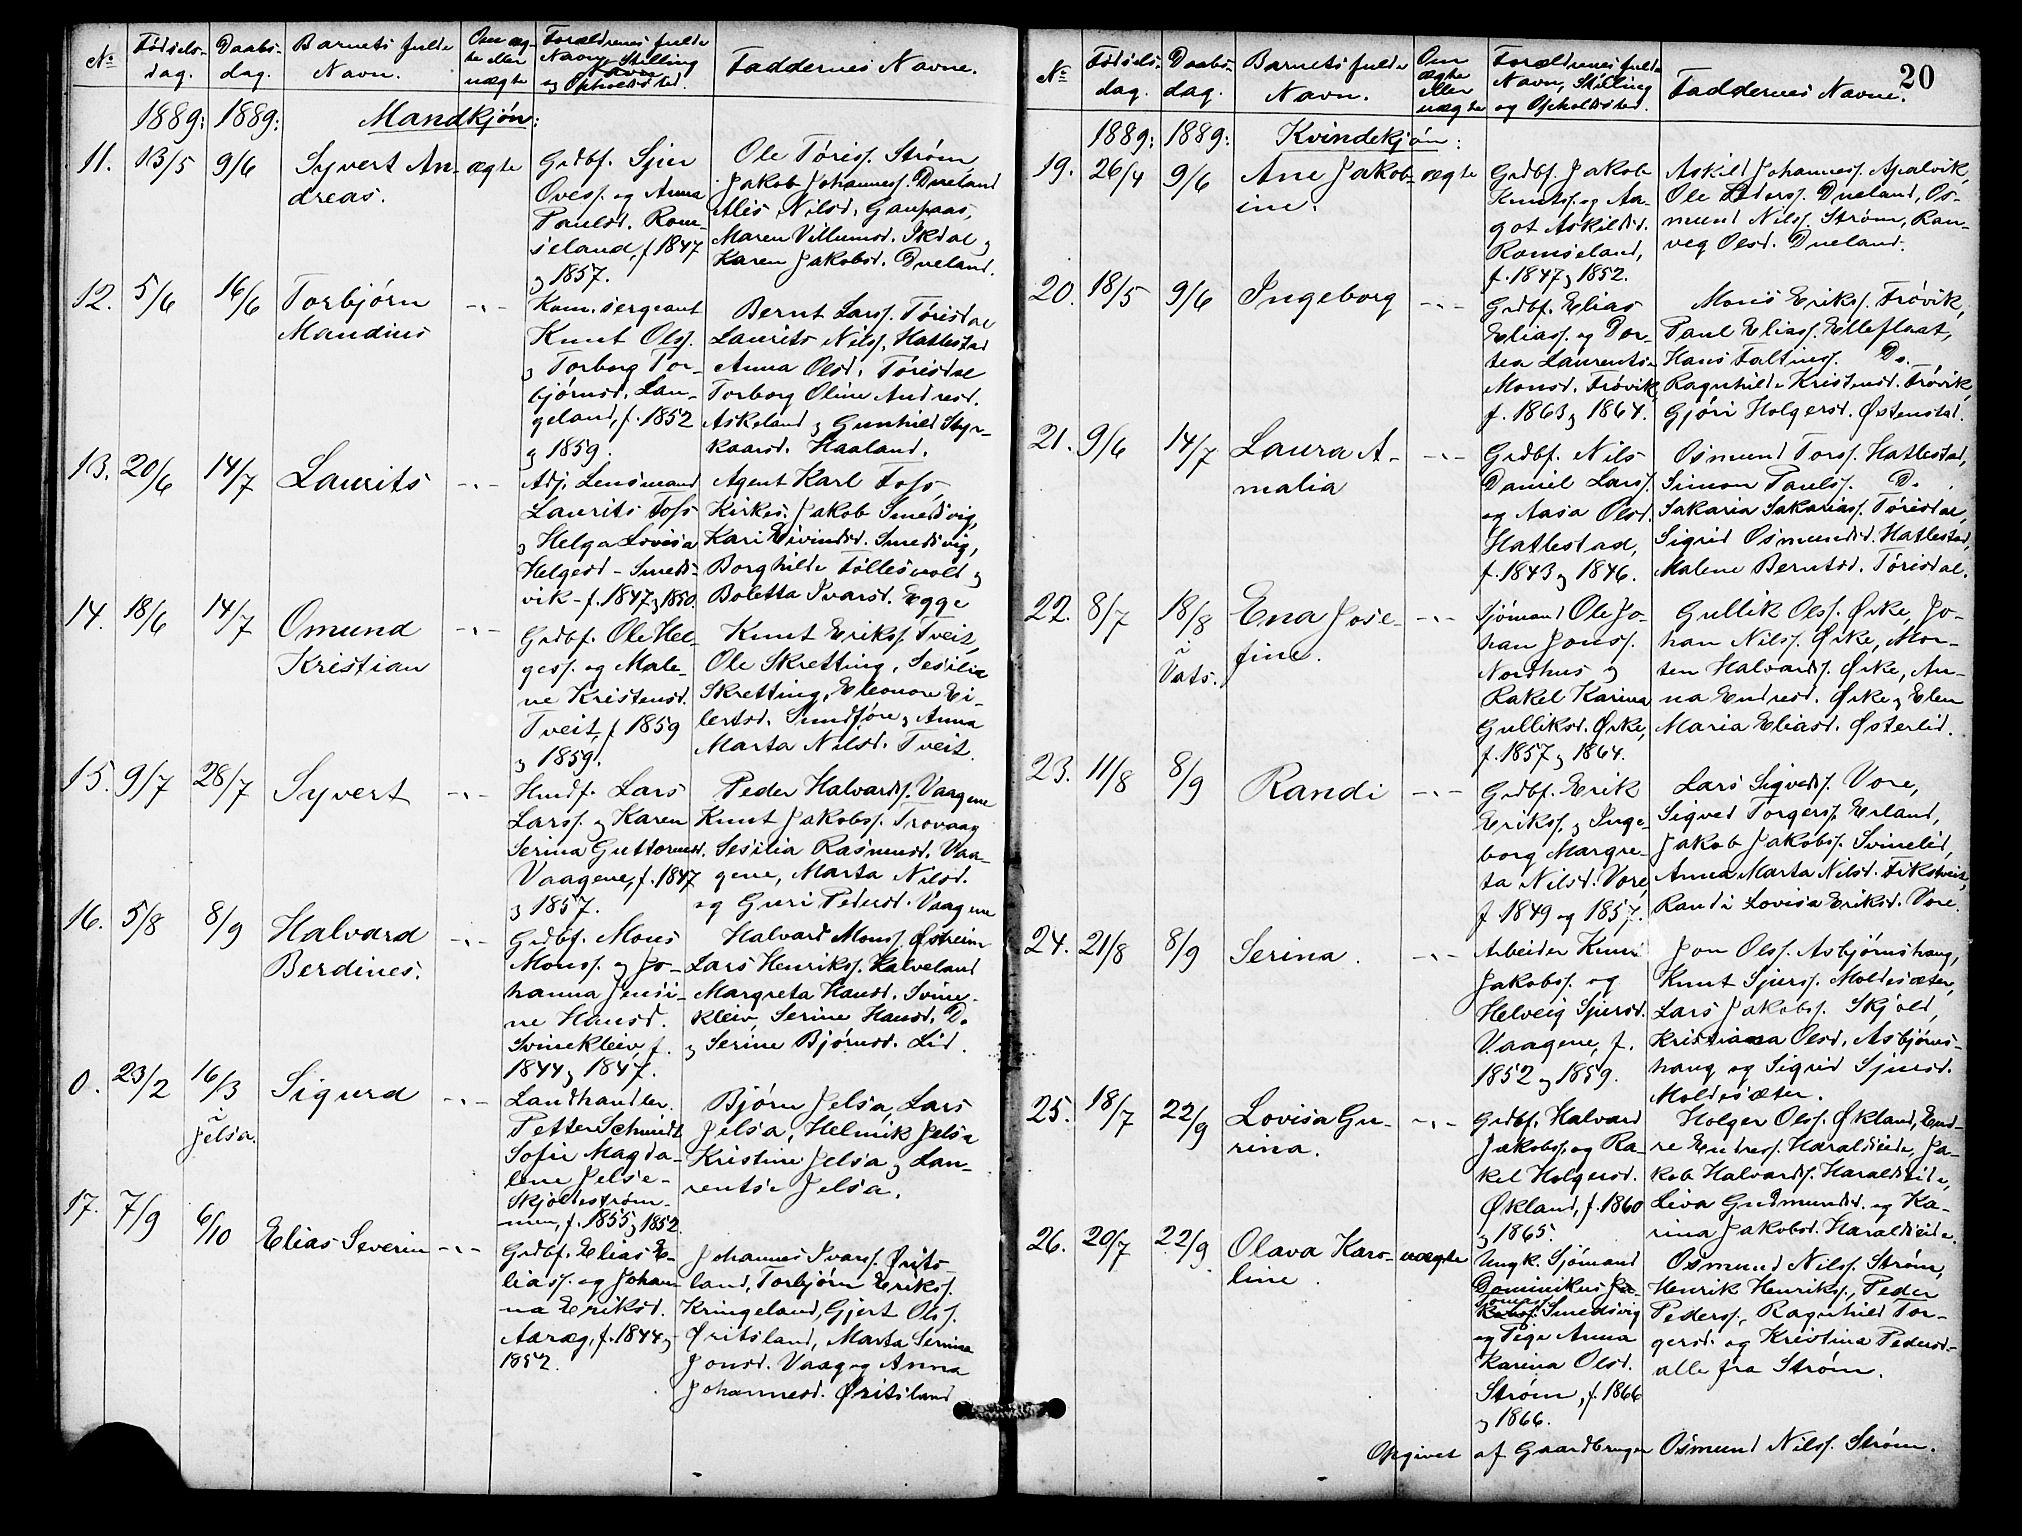 №
Fødsels-
dag.
Daabs-
dag.
Barnets fulde
Navn.
Om æg-
te eller
uægte
Forældrenes fulde
Navn, Stilling
og Opholdssted.
Faddernes Navne.
1889: 1889: Mandkjøn:
11. 13/5 9/6
Syvert An-
dreas.
ægte
Grdbf. Sjur
Ovess. og Anna
Paulsd. Rom-
seland, f 1847
og 1857.
Ole Tøriss. Strøm,
Jakob Johanness. Dueland
Atlis Nilsd. Gaupaas,
Maren Villumsd. Ikdal og
Karen Jakobsd. Dueland.
12. 5/6 16/6
Torbjørn
Mandius
-"-
Kom.sergeant
Knut Olss.
og Torborg Tor-
bjørnsd. Lan-
geland, f. 1852
og 1859.
Bernt Larss. Tørisdal
Laurits Nilss. Hatlestad
Anna Olsd. Tørisdal
Torborg Oline Andresd.
Askeland og Gunhild Styr-
kaarsd. Haaland.
13. 20/6 14/7
Laurits
-"-
Adj. Lensmand
Laurits Foss
og Helga Lovisa
Helgesd - Smeds-
vik - f. 1847 og 1850.
Agent Karl Foss,
Kirkes. Jakob Smedsvig,
Kari Eivindsd. Smedsvig,
Borghilde Føllesvold og
Boletta Ivarsd. Egge
14. 18/6 14/7
Omund
Kristian
-"-
Grdbf. Ole Hel-
gess. og Male-
ne Kristensd.
Tveit, f 1859
og 1859.
Knut Erikss. Tveit,
Ole Skretting, Sesilia
Skretting, Eleonore Ei-
lertsd. Sundføre og Anna
Marta Nilsd. Tveit.
15. 9/7 28/7
Syvert
-"-
Husf. Lars
Larss. og Karen
Serina Guttormsd.
Vaagene, f. 1847
og 1857.
Peder Halvards. Vaagene
Knut Jakobss. Trovaag
Sesilia Rasmusd. Vaa-
gene, Marta Nilsd.
og Guri Pedersd. Vaagene
16. 5/8 8/9
Halvard
Berdines.
-"-
Grdbf. Mons
Monss. og Jo-
hanna Jensi-
ne Hansd.
Svinekleiv, f.
1844 og 1847.
Halvard Monss. Østreim
Lars Henrikss. Kalveland
Margreta Hansd. Svine-
kleiv, Serine Hansd. Do
og Serine Bjørnsd. Lid.
0. 23/2 16/3
i
Jelsa.
Sigurd
-"-
Landhandler
Petter Schmidt
Sofie Magda-
lene Jelse-
Skjoldestrøm-
men, f. 1855 og 1852.
Bjørn Jelsa, Lars
Jelsa, Helmik Jelsa
Kristine Jelsa og Lau-
rentse Jelsa.
17. 7/9 6/10
Elias Severin
-"-
Grdbf. Elias E-
liass. og Johan-
na Eriksd.
Aaræg, f. 1844 og
1852.
Johannes Ivarss. Ørits-
land, Torbjørn Erikss.
Kringeland, Gjert Olss.
Øritsland, Marta Serina
Jonsd. Vaag og Anna
Johannesd. Øritsland
20
№
Fødsels-
dag.
Daabs-
dag.
Barnets fulde
Navn.
Om
ægte
eller
uægte
Forældrenes fulde
Navn, Stilling
og Opholdssted.
Faddernes Navne.
1889: 1889: Kvindekjøn:
19. 26/4 9/6
Ane Jakob-
ine.
ægte
Grdbf. Jakob
Knutss. og Aa-
got Askildsd.
Romseland,
f. 1847 og 1852.
Askild Johanness. Apalvik,
Ole Pederss. Dueland, Os-
mund Nilss. Strøm, Ran-
veg Olsd. Dueland.
20. 18/5 9/6
Ingeborg
-"-
Grdbf. Elias
Eliass. og Dor-
tea Laurents-
Monsd. Frøvik,
f. 1863 og 1864.
Mons Erikss. Frøvik,
Paul Eliass. Elleflaat,
Hans Faltinss. Do.
Ragnhilde Kristensd. Frøvik,
Gjøri Holgersd. Østenstad.
21. 9/6 14/7
Laura A-
malia
-"-
Grdbf. Nils
Daniel Larss.
og Aasa Olsd.
Hatlestad,
f. 1843 og 1846.
Osmund Torss. Hatlestad,
Simon Paulss. Do.
Sakaria Sakariass. Tørisdal,
Sigrid Osmundsd. Hatlestad,
Malene Berntsd. Tørisdal.
22. 8/7 18/8
i
Vats.
Ena Jose-
fine.
-"-
Sjømand Ole Jo-
han Jonss.
Nordhus og
Rakel Karina
Gulliksd. Ørke,
f. 1857 og 1864.
Gullik Olss. Ørke, Jo-
han Nilss. Ørke, Mor-
ten Halvards. Ørke, An-
na Endresd. Ørke og Elen
Maria Eliasd. Østerlid.
23. 11/8 8/9
Randi
-"-
Grdbf. Erik
Erikss. og Inge-
borg Margre-
ta Nilsd. Vore,
f. 1849 og 1857.
Lars Sigveds. Vore,
Sigved Torgerss. Erland,
Jakob Jakobss. Svinelid,
Anna Marta Nilsd. Fikstveit,
Randi Lovisa Eriksd. Vore.
24. 21/8 8/9
Serina.
-"-
Arbeider Knut
Jakobss. og
Helveig Sjursd.
Vaagene, f.
1852 og 1859.
Jon Olss. Asbjørnshaug,
Knut Sjurss. Moldesæter,
Lars Jakobss. Skjold,
Kristiana Olsd. Asbjørns-
haug og Sigrid Sjursd.
Moldesæter.
25. 18/7 22/9
Lovisa Gu-
rina.
-"-
Grdbf. Halvard
Jakobss. og Ra-
kel Holgersd.
Økland, f. 1860
og 1865.
Holger Olss. Økland, End-
re Endress. Haraldseide, Ja-
kob Halvards. Haraldseide,
Liva Gudmundsd. og Ka-
rina Jakobsd. Haraldseide.
26. 20/7 22/9.
Olava Karo-
line.
uægte
Ungk. Sjømand
Dominikus Ja-
kobs. Smedsvig
og Pige Anna
Karina Olsd.
Strøm, f. 1866
og 1866.
Osmund Nilss. Strøm,
Henrik Henrikss., Peder
Pederss., Ragnhild Tor-
gersd. og Kristina Pedersd-
alle fra Strøm.
Opgivet af Gaardbruger Osmund Nilss. Strøm.